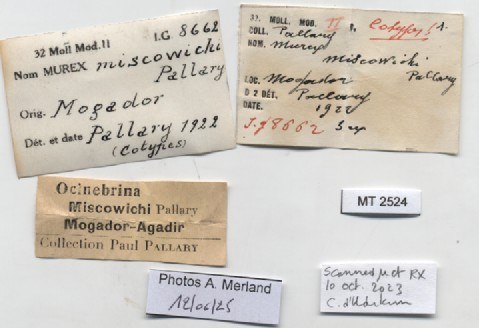 I.G. 8662
32 Moll Mod. II
Nom MUREX miscowichi
Pallary
Orig. Mogador
Dét. et date Pallary 1922
(Cotypes)
32. MOLL. MOD. II P. Cotypes
COLL. Pallary
NOM. Murex
miscowichi
Pallary
LOC. Mogador
DÉT. Pallary
DATE. 1922
I.g 8662
Ocinebrina
Miscowichi Pallary
Mogador-Agadir
Collection Paul PALLARY
MT 2524
Photos A. Merland
12/06/25
Scanned μct RX
10 oct. 2023